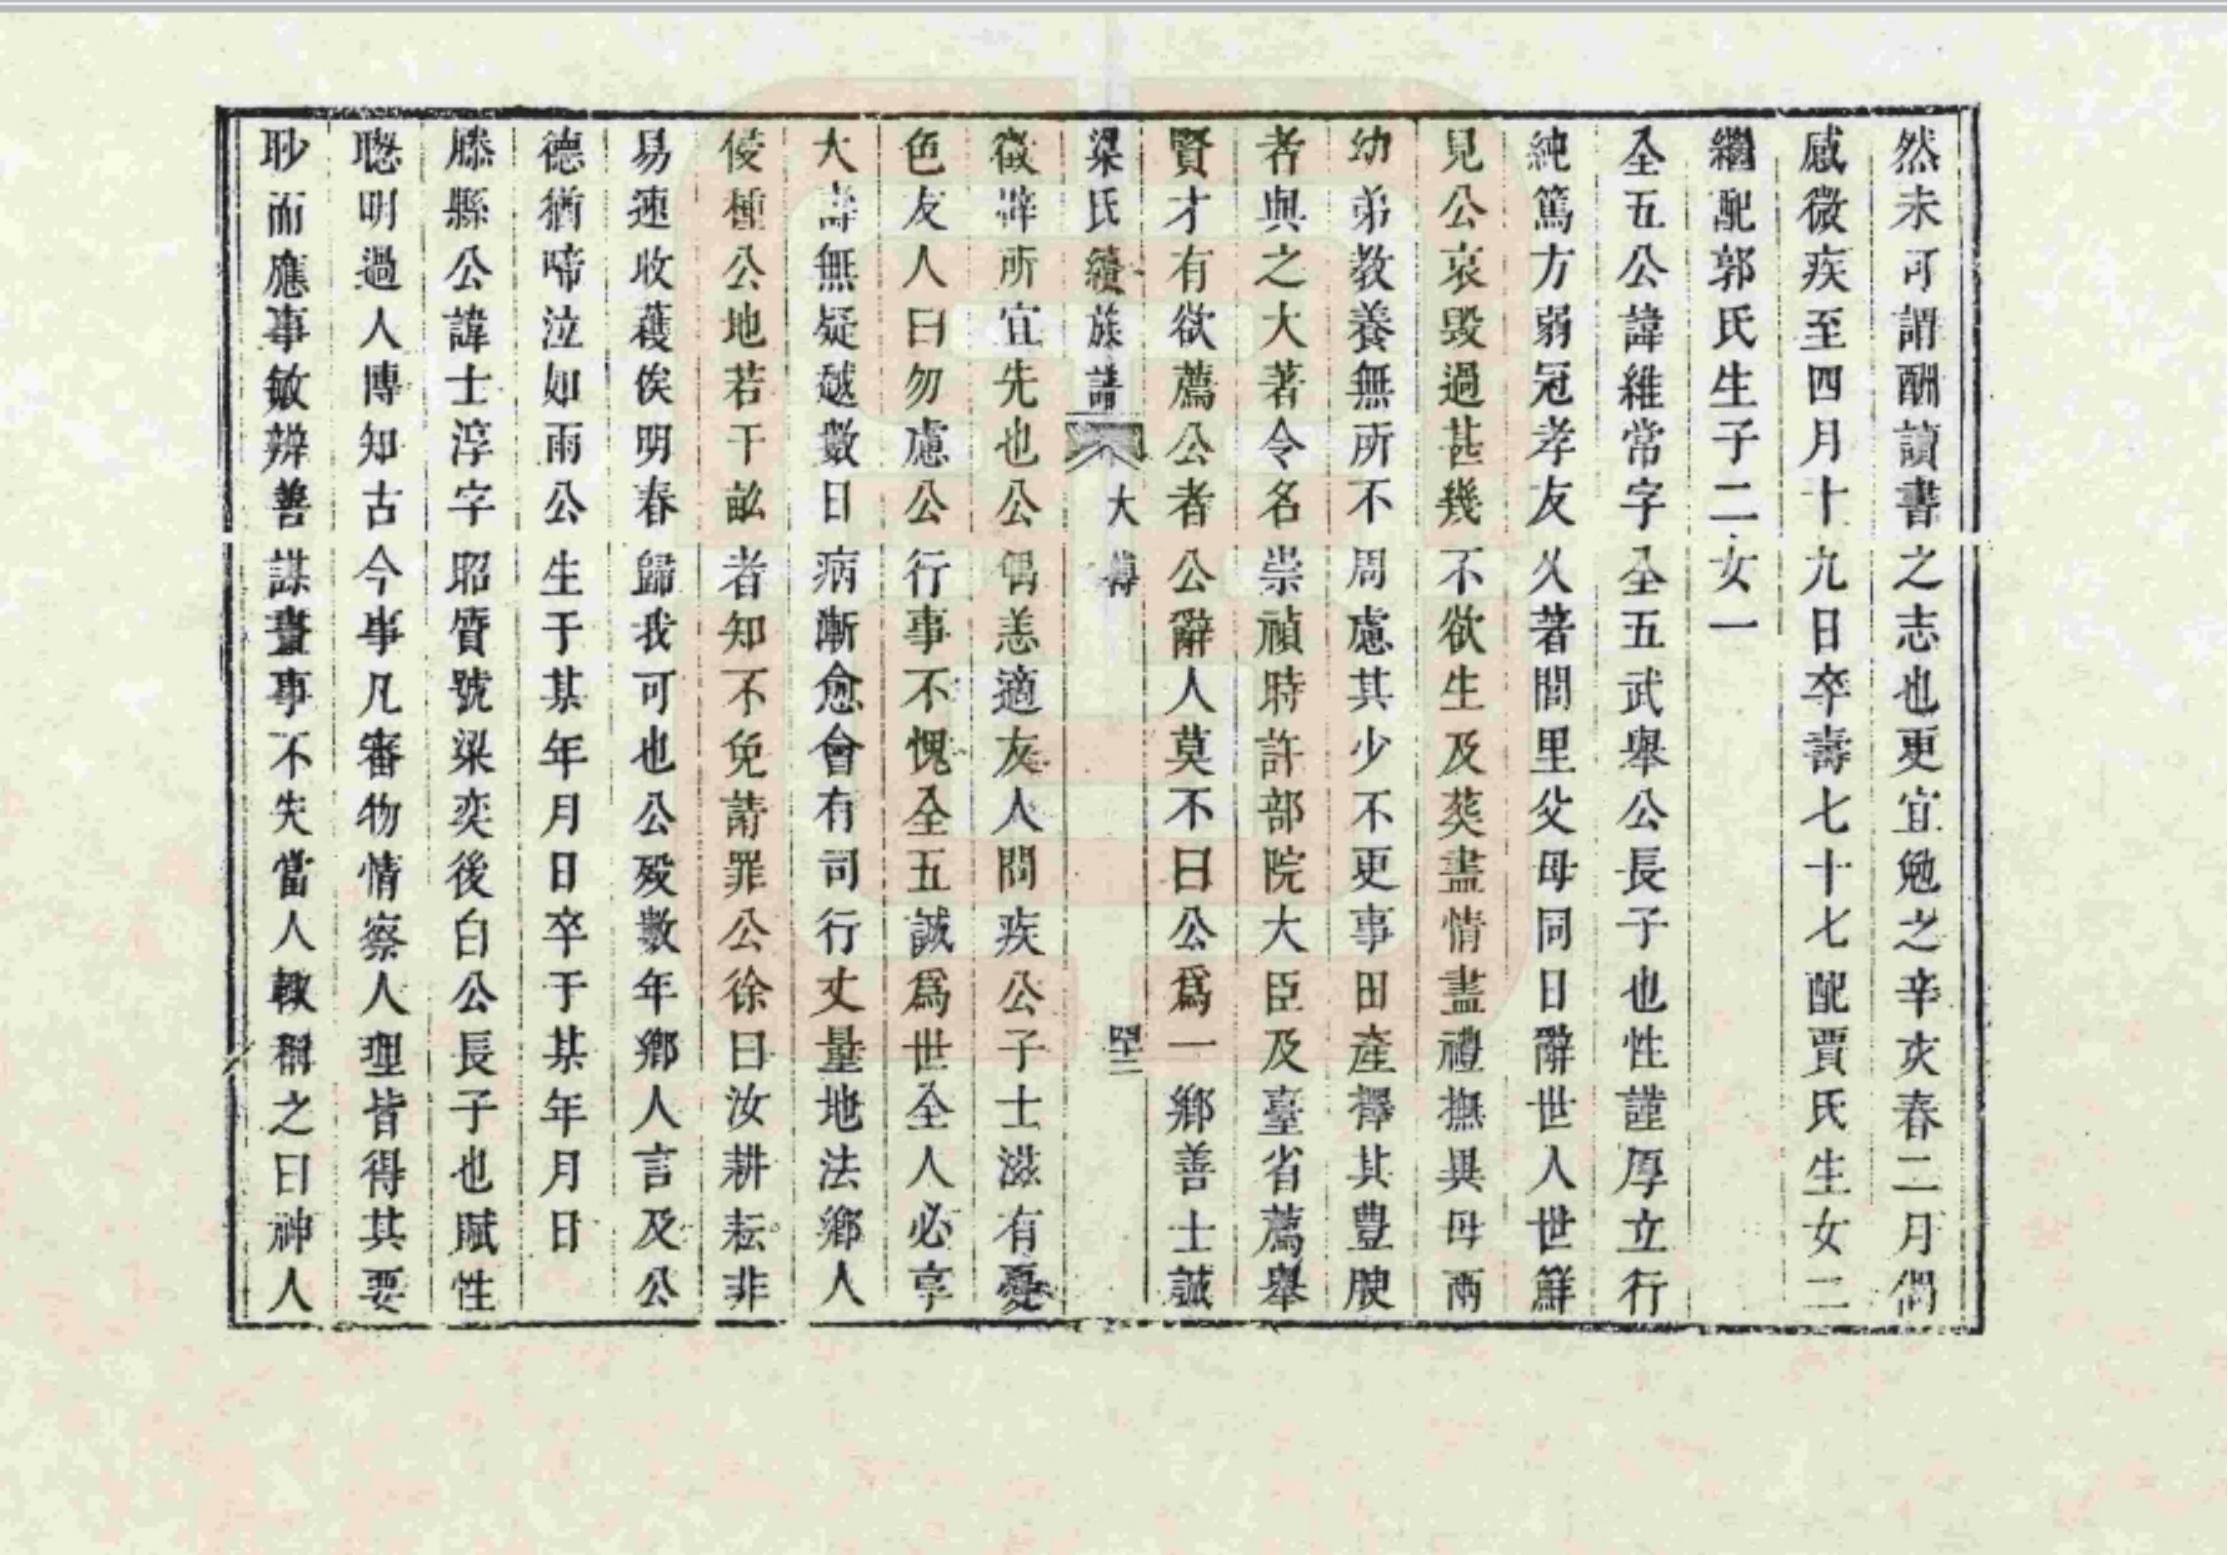 然未可謂酬讀書之志也更宜勉之辛亥春二月偶
感微疾至四月十九日卒壽七十七配賈氏生女二
繼配郭氏生子二女一
全五公諱維常字全五武舉公長子也性謹厚立行
純篤方弱冠孝友久著閭里父母同日辭世人世鮮
見公哀毀過甚幾不欲生及葵盡情盡禮撫異母兩
幼弟教養無所不周慮其少不更事田產擇其豐腴
者與之大著令名崇禎時許部院大臣及臺省薦舉
賢才有欲薦公者公辭人莫不曰公爲一鄉善士誠
梁氏續族譜 大傳 四十二
徵辟所宜先也公偶恙適友人問疾公子士滋有憂
色友人曰勿慮公行事不愧全五誠爲世全人必享
大壽無疑越數日病漸愈會有司行丈量地法鄉人
侵種公地若干畝者知不免請罪公徐曰汝耕耘非
易速收穫俟明春歸我可也公歿數年鄉人言及公
德猶啼泣如雨公生于某年月日卒于某年月日
滕縣公諱士淳字昭質號梁奕後白公長子也賦性
聰明過人博知古今事凡審物情察人理皆得其要
耿而應事敏辨善謀畫事不失當人輙稱之曰神人